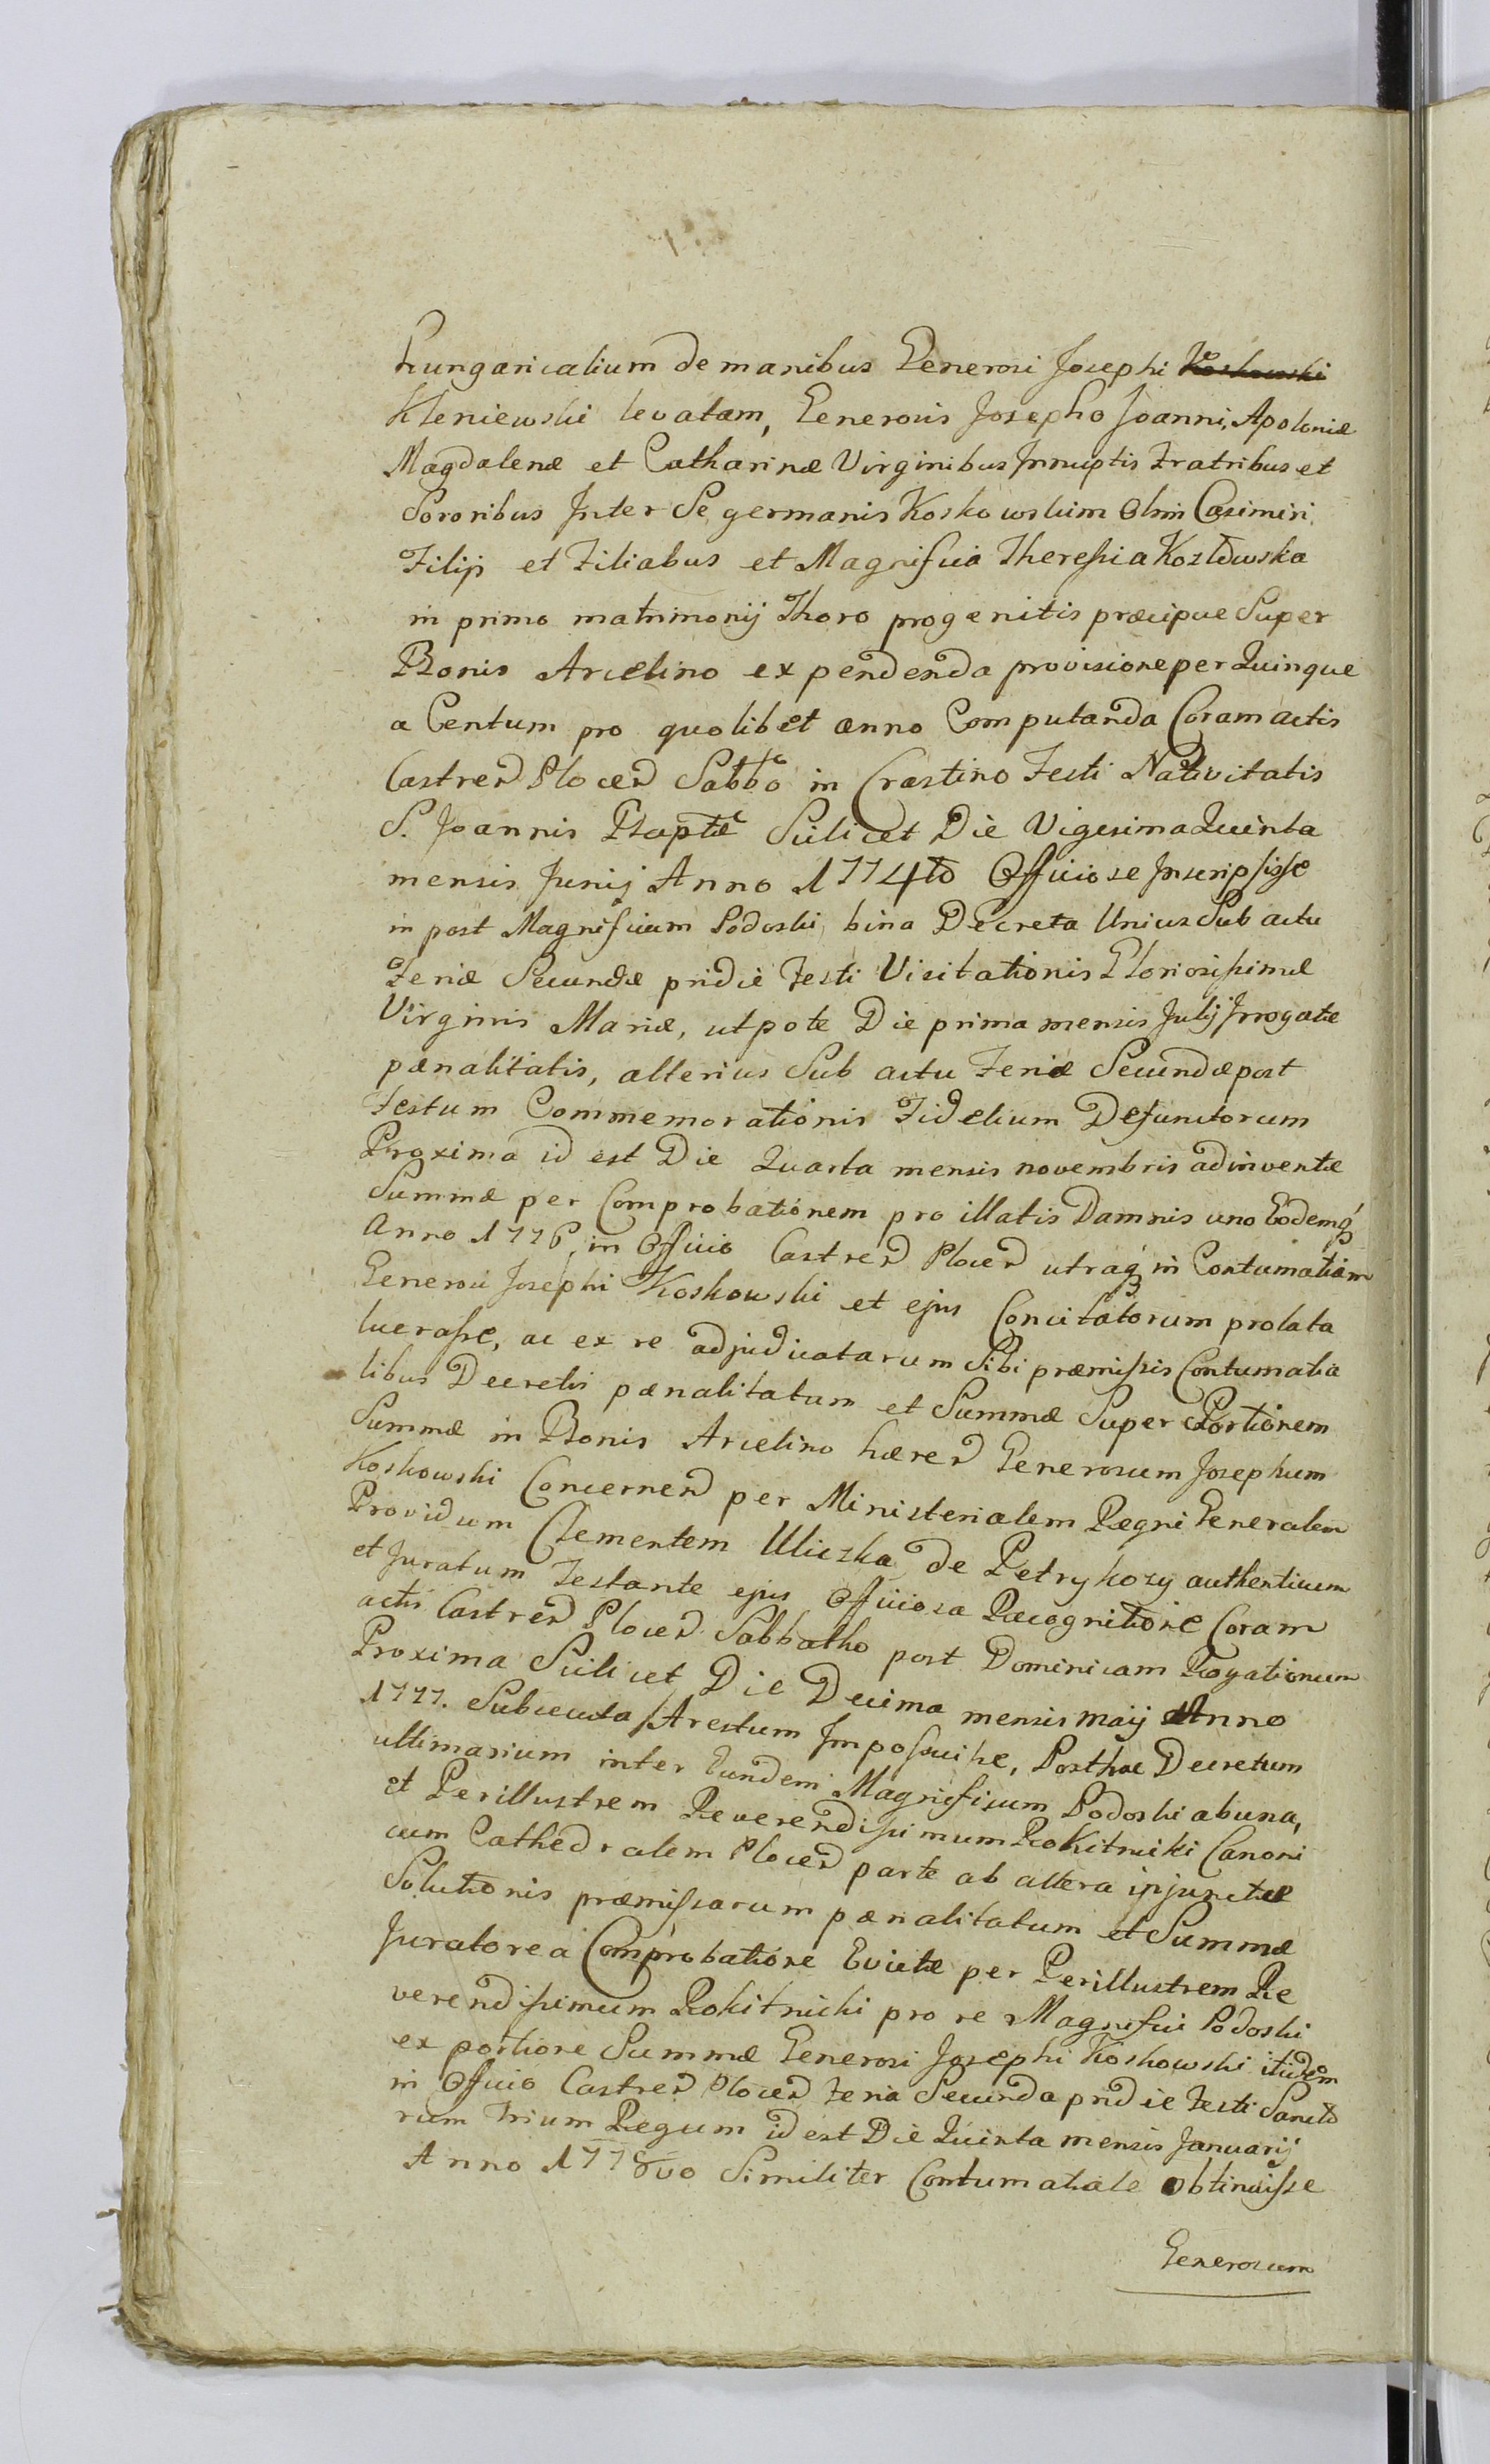 hungaricalium de manibus Generosi Josephi Koskowski
Kleniewski levatam, Generosis Josepho Joanni, Apoloniæ
Magdalenæ et Catharinæ Virginibus Innuptis Fratribus et
Sororibus Inter Se germanis Koskowskim Olim Casimiri
Filijs et Filiabus et Magnifica Theresia Kozłowska
in primo matrimonij Thoro progenitis præcipue Super
Bonis Arcelino expendenda provisione per Quinque
a Centum pro quolibet anno Computanda Coram actis
Castren Plocen Sabbo in Crastino Festi Nativitatis
S. Joannis Baptæ Scilicet Die Vigesima Quinta
mensis Junij Anno 1774to Officiose Inscripsisse
in post Magnificum Podoski, bina Decreta Unius Sub actu
Feriæ Secundæ pridie Festi Visitationis Gloriosissimæ
Virginis Mariæ, utpote Die prima mensis Julij Irrogatæ
pænalitatis, alterius Sub actu Feriæ Secundæ post
Festum Commemorationis Fidelium Defunctorum
Proxima id est Die Quarta mensis novembris adinventæ
Summæ per Comprobationem pro illatis Damnis uno Eodemq
Anno 1776, in Officio Castren Plocen utraq in Contumatiam
Generosi Josephi Koskowski et ejus Concitatorum prolata
lucrasse, ac ex re adjudicatarum Sibi præmissis Contumatia
libus Decretis pænalitatum et Summæ Super Portionem
Summæ in Bonis Arcelino hæren Generosum Josephum
Koskowski Concernen per Ministerialem Regni Generalem
Providum Clementem Uliczka de Petrykozy authenticum
et Juratum Testante ejus Officiosa Recognitione Coram
actis Castren Plocen Sabbatho post Dominicam Rogationum
Proxima Scilicet Die Decima mensis Maij Anno
1777. Subsecuta Arestum Imposuisse, Posthac Decretum
ultimarium inter Eundem Magnificum Podoski ab una,
et Perillustrem Reverendissimum Rokitnicki Canoni
cum Cathedralem Plocen parte ab altera injunctæ
Solutionis præmissarum pænalitatum et Summæ
Juratorea Comprobatione Evictæ per Perillustrem Re
verendissimum Rokitnicki pro re Magnifici Podoski
ex portione Summæ Generosi Josephi Koskowski itidem
in Officio Castren Plocen Feria Secunda pridie Festi Sancto
rum Trium Regum id est Die Quinta mensis Januarij
Anno 1778vo Similiter Contumatiale obtinuisse
Generosum